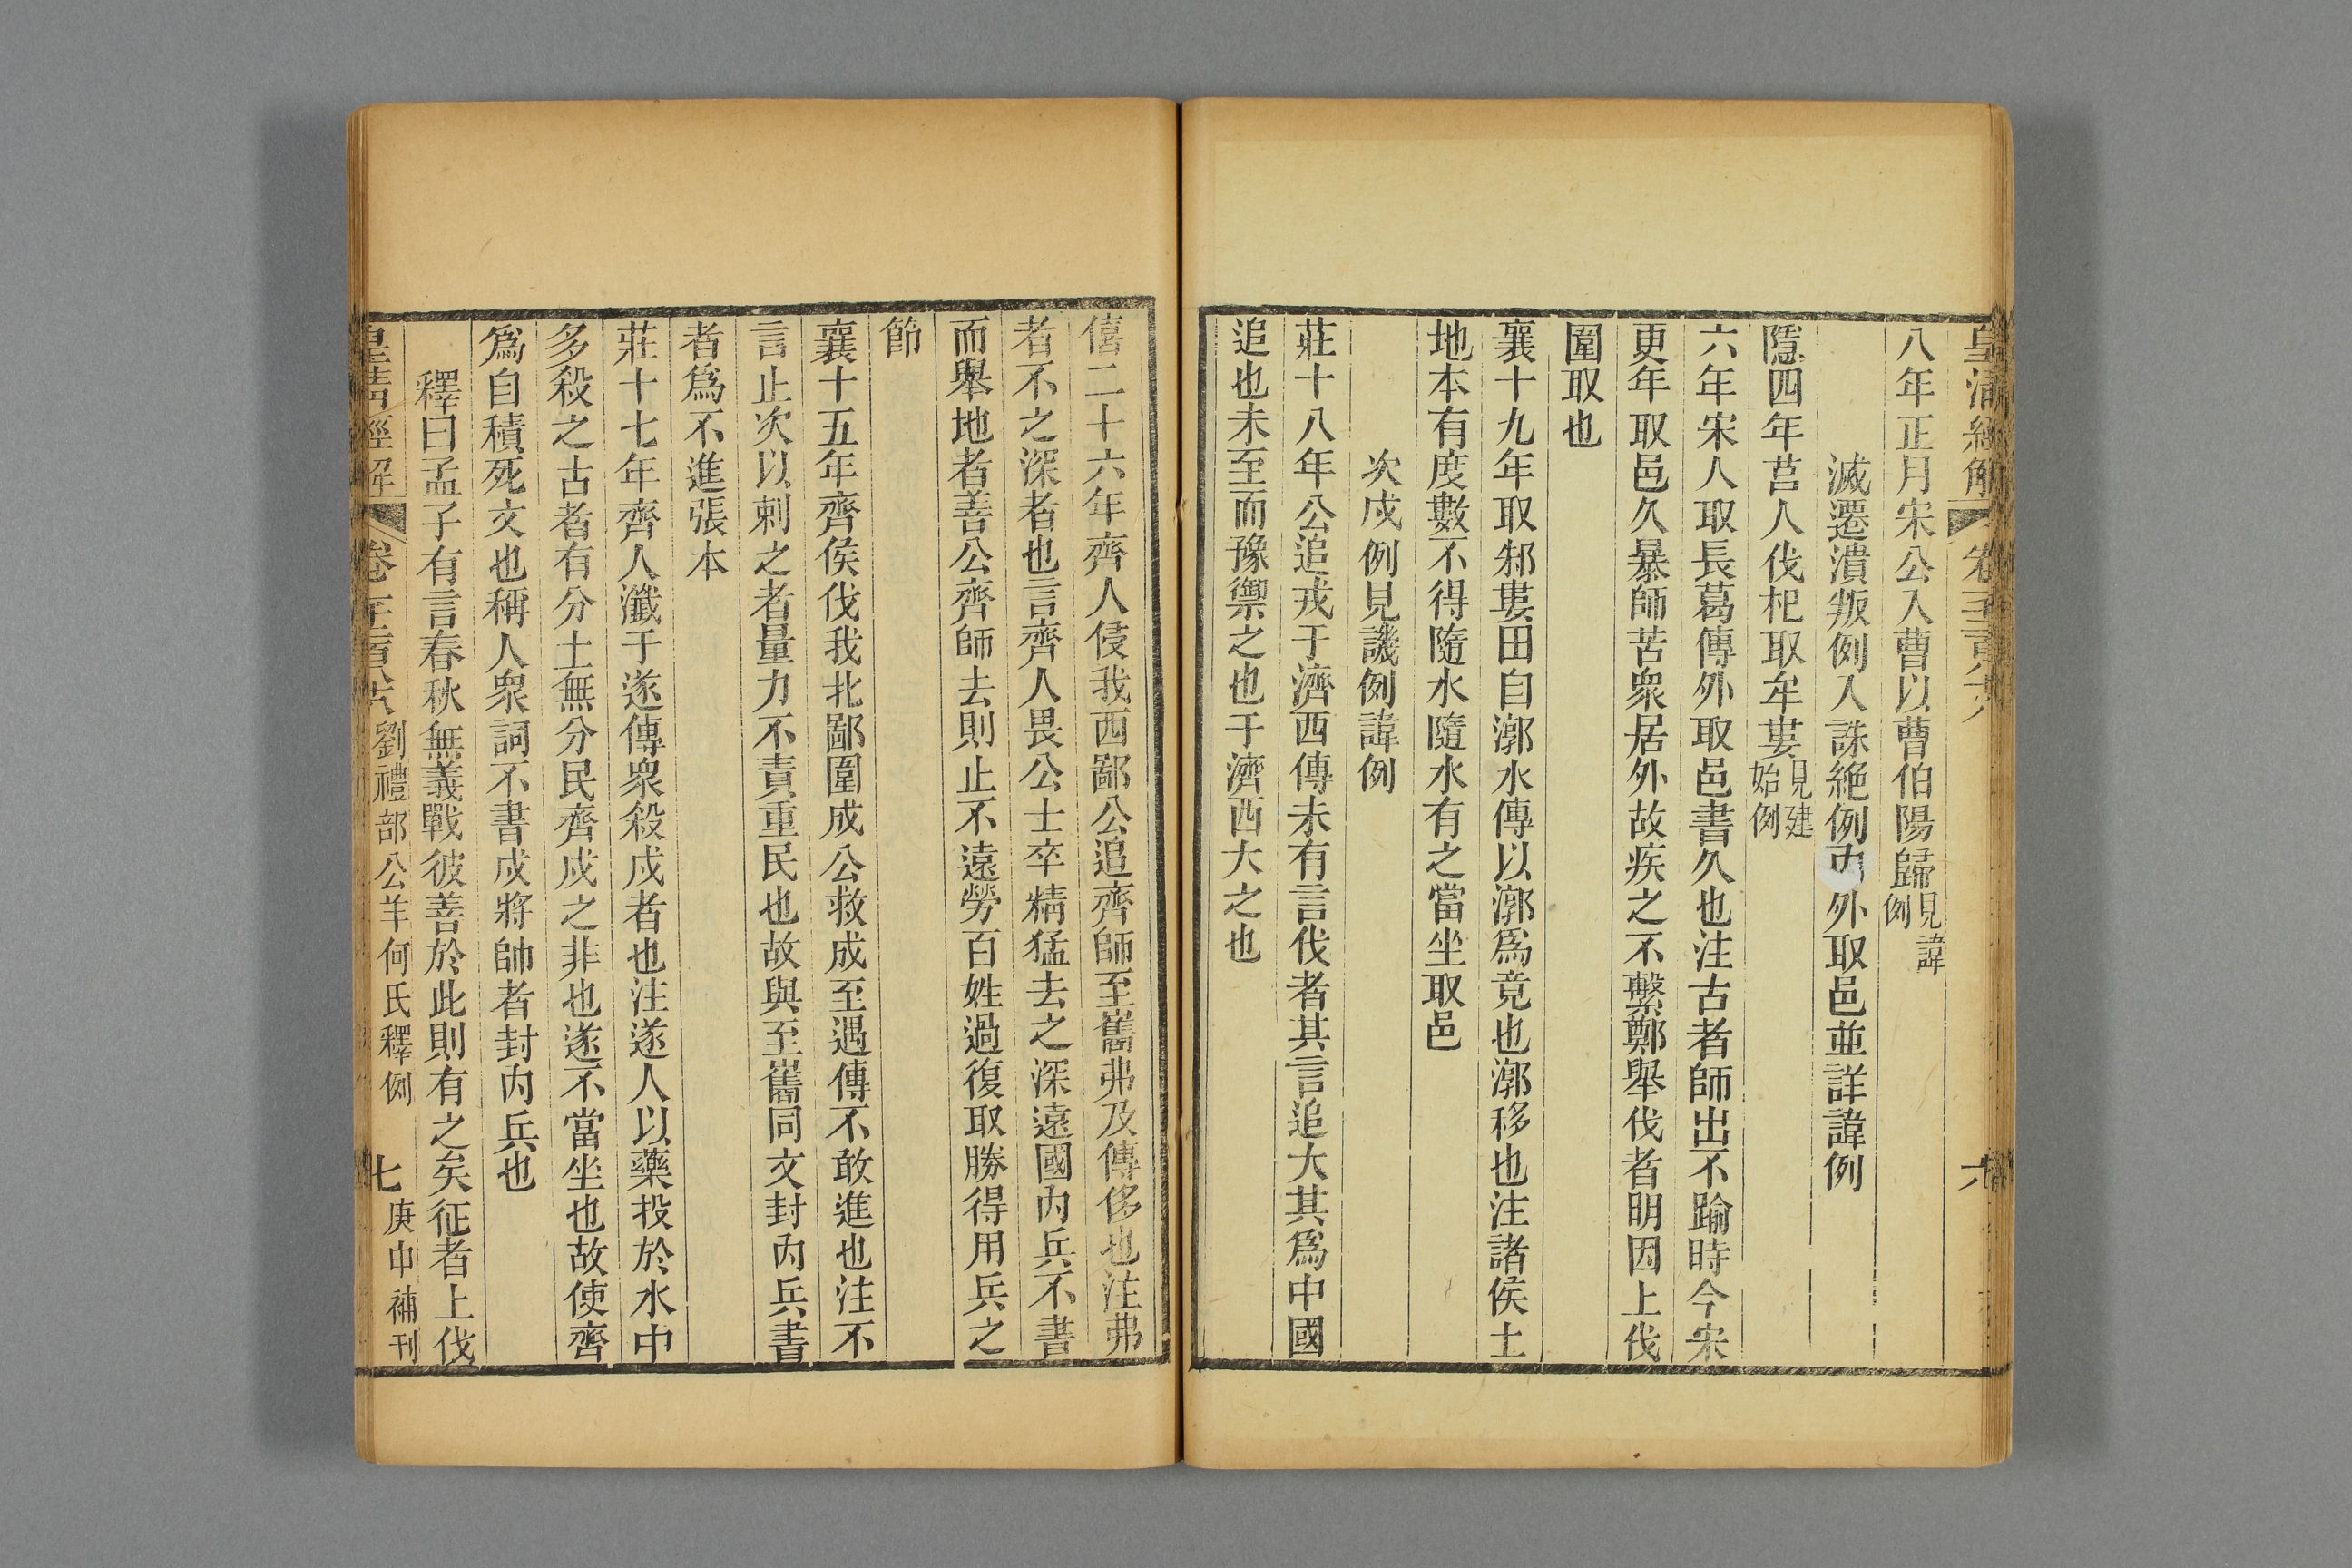 皇清經解 卷千二百八十六 六
八年正月宋公入曹以曹伯陽歸見諱例
滅遷潰叛例入誅絕例內外取邑並詳諱例
隱四年莒人伐杞取牟婁見建始例
六年宋人取長葛傳外取邑書久也注古者師出不踰時今宋
更年取邑久暴師苦衆居外故疾之不繫鄭舉伐者明因上伐
圍取也
襄十九年取邾婁田自漷水傳以漷爲竟也漷移也注諸侯土
地本有度數不得隨水隨水有之當坐取邑
次戍例見譏例諱例
莊十八年公追戎于濟西傳未有言伐者其言追大其爲中國
追也未至而豫禦之也于濟西大之也
僖二十六年齊人侵我西鄙公追齊師至巂弗及傳侈也注弗
者不之深者也言齊人畏公士卒精猛去之深遠國內兵不書
而舉地者善公齊師去則止不遠勞百姓過復取勝得用兵之
節
襄十五年齊侯伐我北鄙圍成公救成至遇傳不敢進也注不
言止次以剌之者量力不責重民也故與至巂同文封內兵書
者爲不進張本
莊十七年齊人瀸于遂傳衆殺戍者也注遂人以藥投於水中
多殺之古者有分土無分民齊戍之非也遂不當坐也故使齊
爲自積死文也稱人衆詞不書戍將帥者封內兵也
釋曰孟子有言春秋無義戰彼善於此則有之矣征者上伐
皇清經解 卷千二百八十六 劉禮部公羊何氏釋例 七 庚申補刊